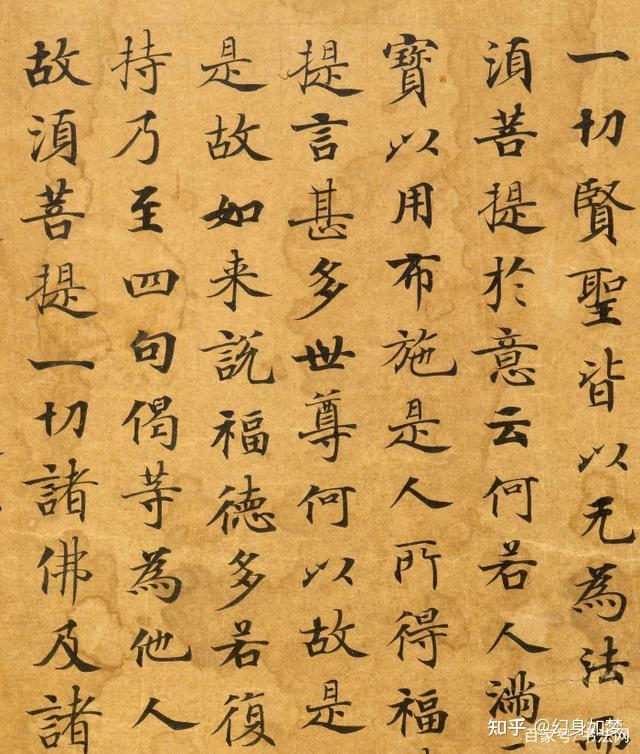 一切賢聖皆以无為法
須菩提於意云何若人滿
寳以用布施是人所得福
提言甚多世尊何以故是
是故如来說福德多若復
持乃至四句偈等為他人
故須菩提一切諸佛及諸
知乎 @幻身如梦
百家号/书法网